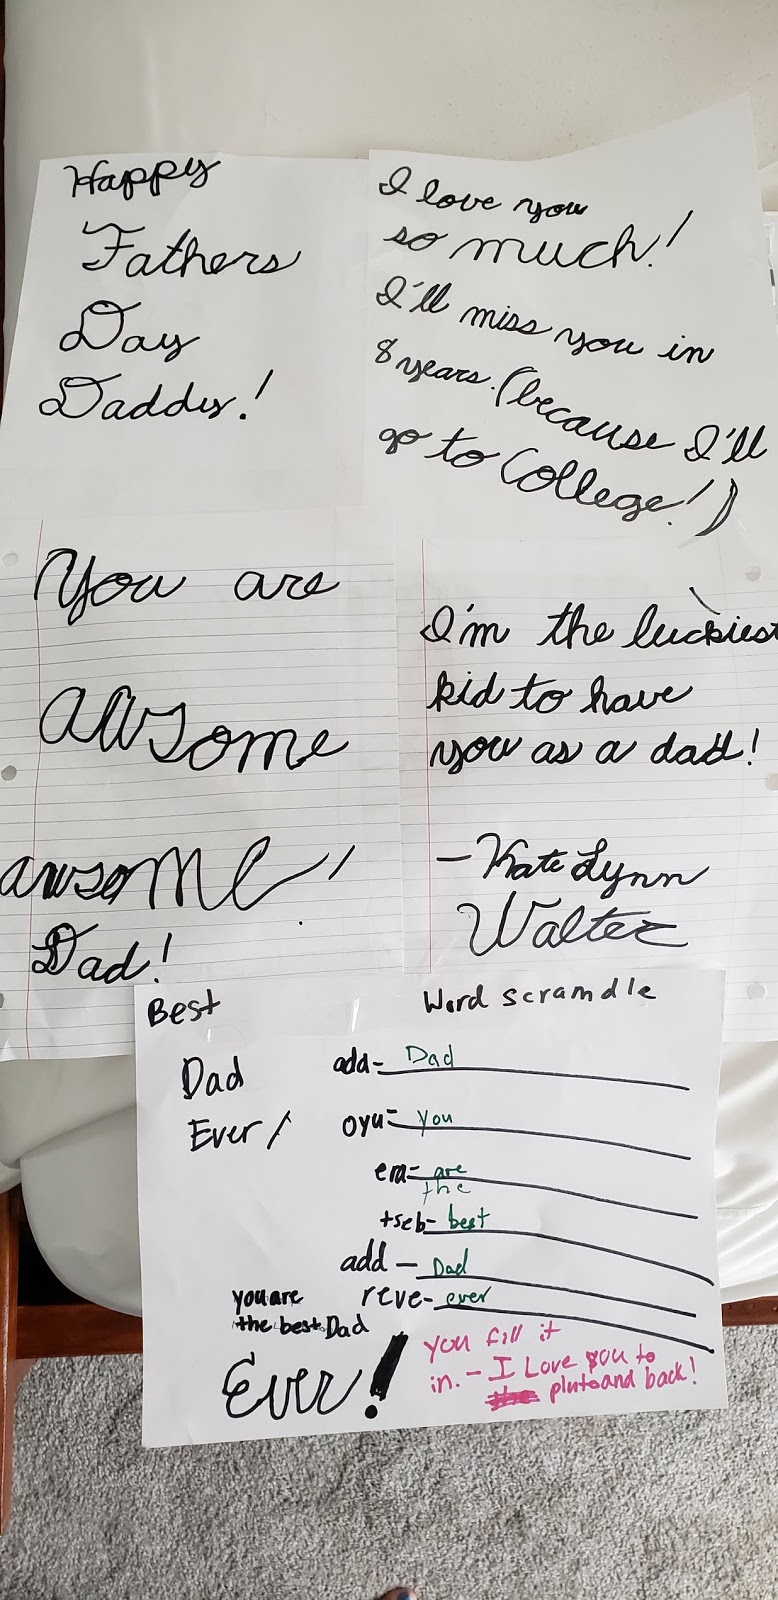 Happy
Fathers
Day
Daddy!
I love you
so much!
I'll miss you in
8 years. (because I'll
go to College!)
You are
awsome
awsome!
Dad!
I'm the luckiest
kid to have
you as a dad!
- Kate Lynn
Walter
Best
Dad
Ever!
Word scramdle
add- Dad
oyu- you
era- are
the
tseb- best
add - Dad
reve- ever
you are
the best Dad
Ever!
you fill it
in. - I Love you to
pluto and back!